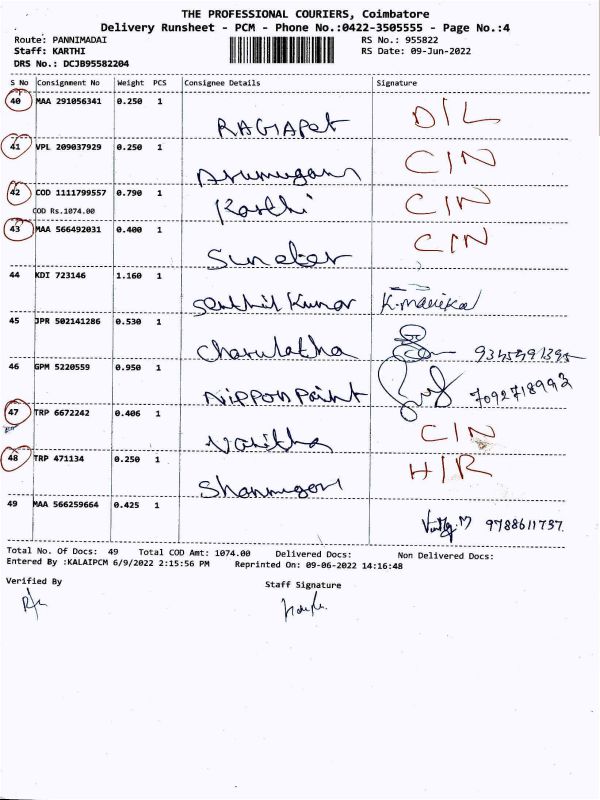 THE PROFESSIONAL COURIERS, Coimbatore
Delivery Runsheet - PCM - Phone No.:0422-3505555 - Page No.:4
Route: PANNIMADAI RS No.: 955822
Staff: KARTHI RS Date: 09-Jun-2022
DRS No.: DCJB95582204
S No Consignment No Weight PCS Consignee Details Signature
40 MAA 291056341 0.250 1
RAGIAPet D/L
41 VPL 209037929 0.250 1
Arumugam C/N
42 COD 1111799557 0.790 1
COD Rs.1074.00 Karthi C/N
43 MAA 566492031 0.400 1
C/N
44 KDI 723146 1.160 1
Senthil Kumar K.manikal
45 JPR 502141286 0.530 1
Charulatha
46 GPM 5220559 0.950 1
Nippon Paint 7092718993
47 TRP 6672242 0.406 1
Vanitha C/N
48 TRP 471134 0.250 1
Shanmugam H/R
49 MAA 566259664 0.425 1
9788611737.
Total No. Of Docs: 49 Total COD Amt: 1074.00 Delivered Docs: Non Delivered Docs:
Entered By :KALAIPCM 6/9/2022 2:15:56 PM Reprinted On: 09-06-2022 14:16:48
Verified By Staff Signature